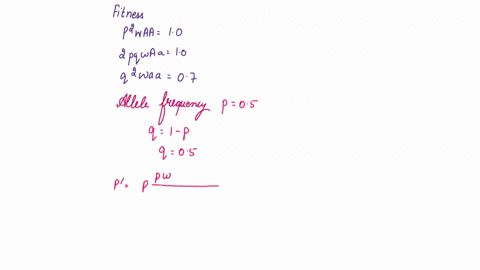 Fitness
p²wAA = 1.0
2pqwAa = 1.0
q²waa = 0.7
Allele frequency p = 0.5
q = 1 - p
q = 0.5
p' = p pw